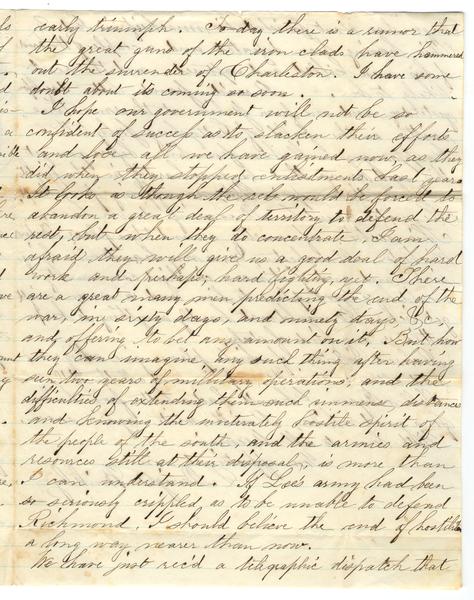 early triumph. To-day there is a rumor that
the great guns of the iron clads have hammered
out the surrender of Charleston. I have some
doubt about its coming so soon.
I hope our government will not be so
confident of success as to slacken their efforts
and lose all we have gained now, as they
did when they stopped enlistments last year.
It looks as though the rebs would be forced to
abandon a great deal of territory to defend the
rest, but when they do concentrate, I am
afraid they will give us a good deal of hard
work and perhaps, hard fighting, yet. There
are a great many men predicting the end of the
war, in sixty days, and ninety days &c,
and offering to bet any amount on it. But how
they can imagine any such thing after having
seen two years of military operations, and the
difficulties of extending them such immense distances
and knowing the hostile spirit of
the people of the south, and the armies and
resources still at their disposal, is more than
I can understand. If Lee's army had been
so seriously crippled as to be unable to defend
Richmond, I should believe the end of hostilities
a long way nearer than now.
We have just rec'd a telegraphic dispatch that